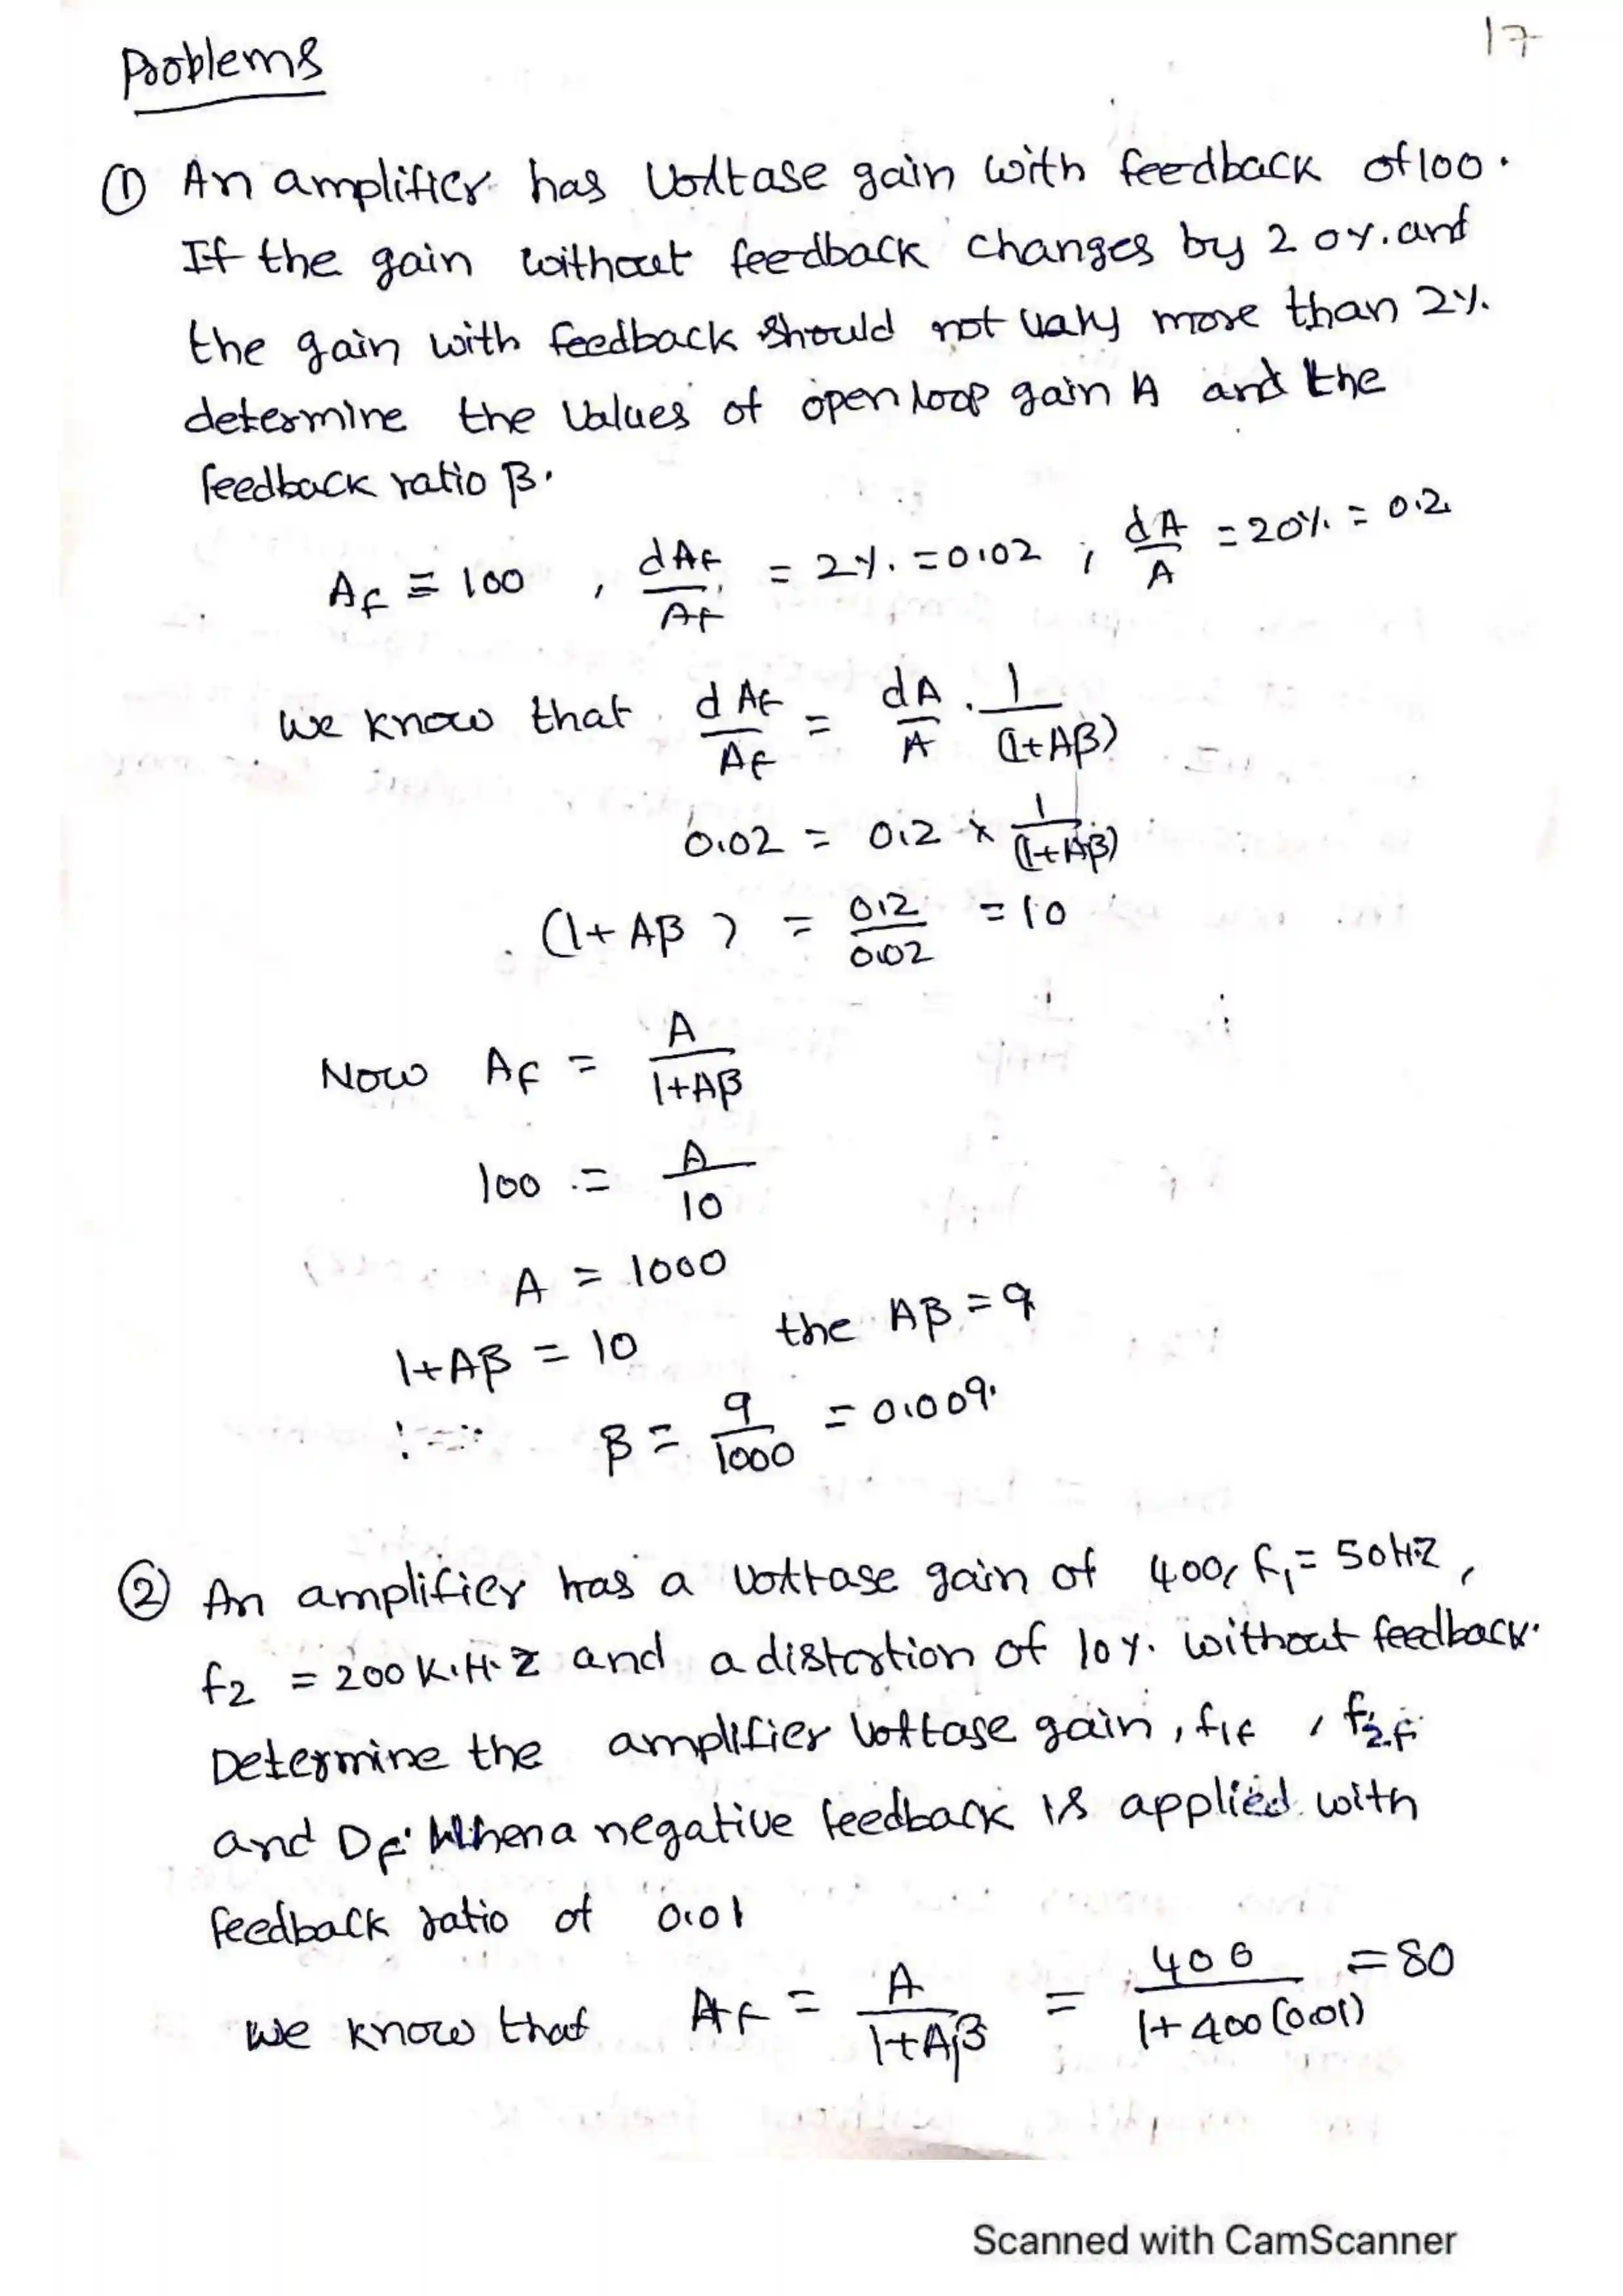 17
Problems
① An amplifier has Voltage gain with feedback of 100.
If the gain without feedback changes by 20%. and
the gain with feedback should not vary more than 2%.
determine the values of open loop gain A and the
feedback ratio β.
Af = 100 , dAf/Af = 2% = 0.02 ; dA/A = 20% = 0.2
We know that dAf/Af = dA/A . 1/(1+Aβ)
0.02 = 0.2 × 1/(1+Aβ)
(1+Aβ) = 0.2/0.02 = 10
Now Af = A/1+Aβ
100 = A/10
A = 1000
1+Aβ = 10 the Aβ = 9
β = 9/1000 = 0.009.
② An amplifier has a voltage gain of 400, f1 = 50HZ,
f2 = 200 K.H.Z and a distortion of 10%. without feedback.
Determine the amplifier voltage gain, f1f , f2f
and Df. When a negative feedback is applied with
feedback ratio of 0.01
We know that Af = A/1+Aβ = 400/1+400(0.01) = 80
Scanned with CamScanner